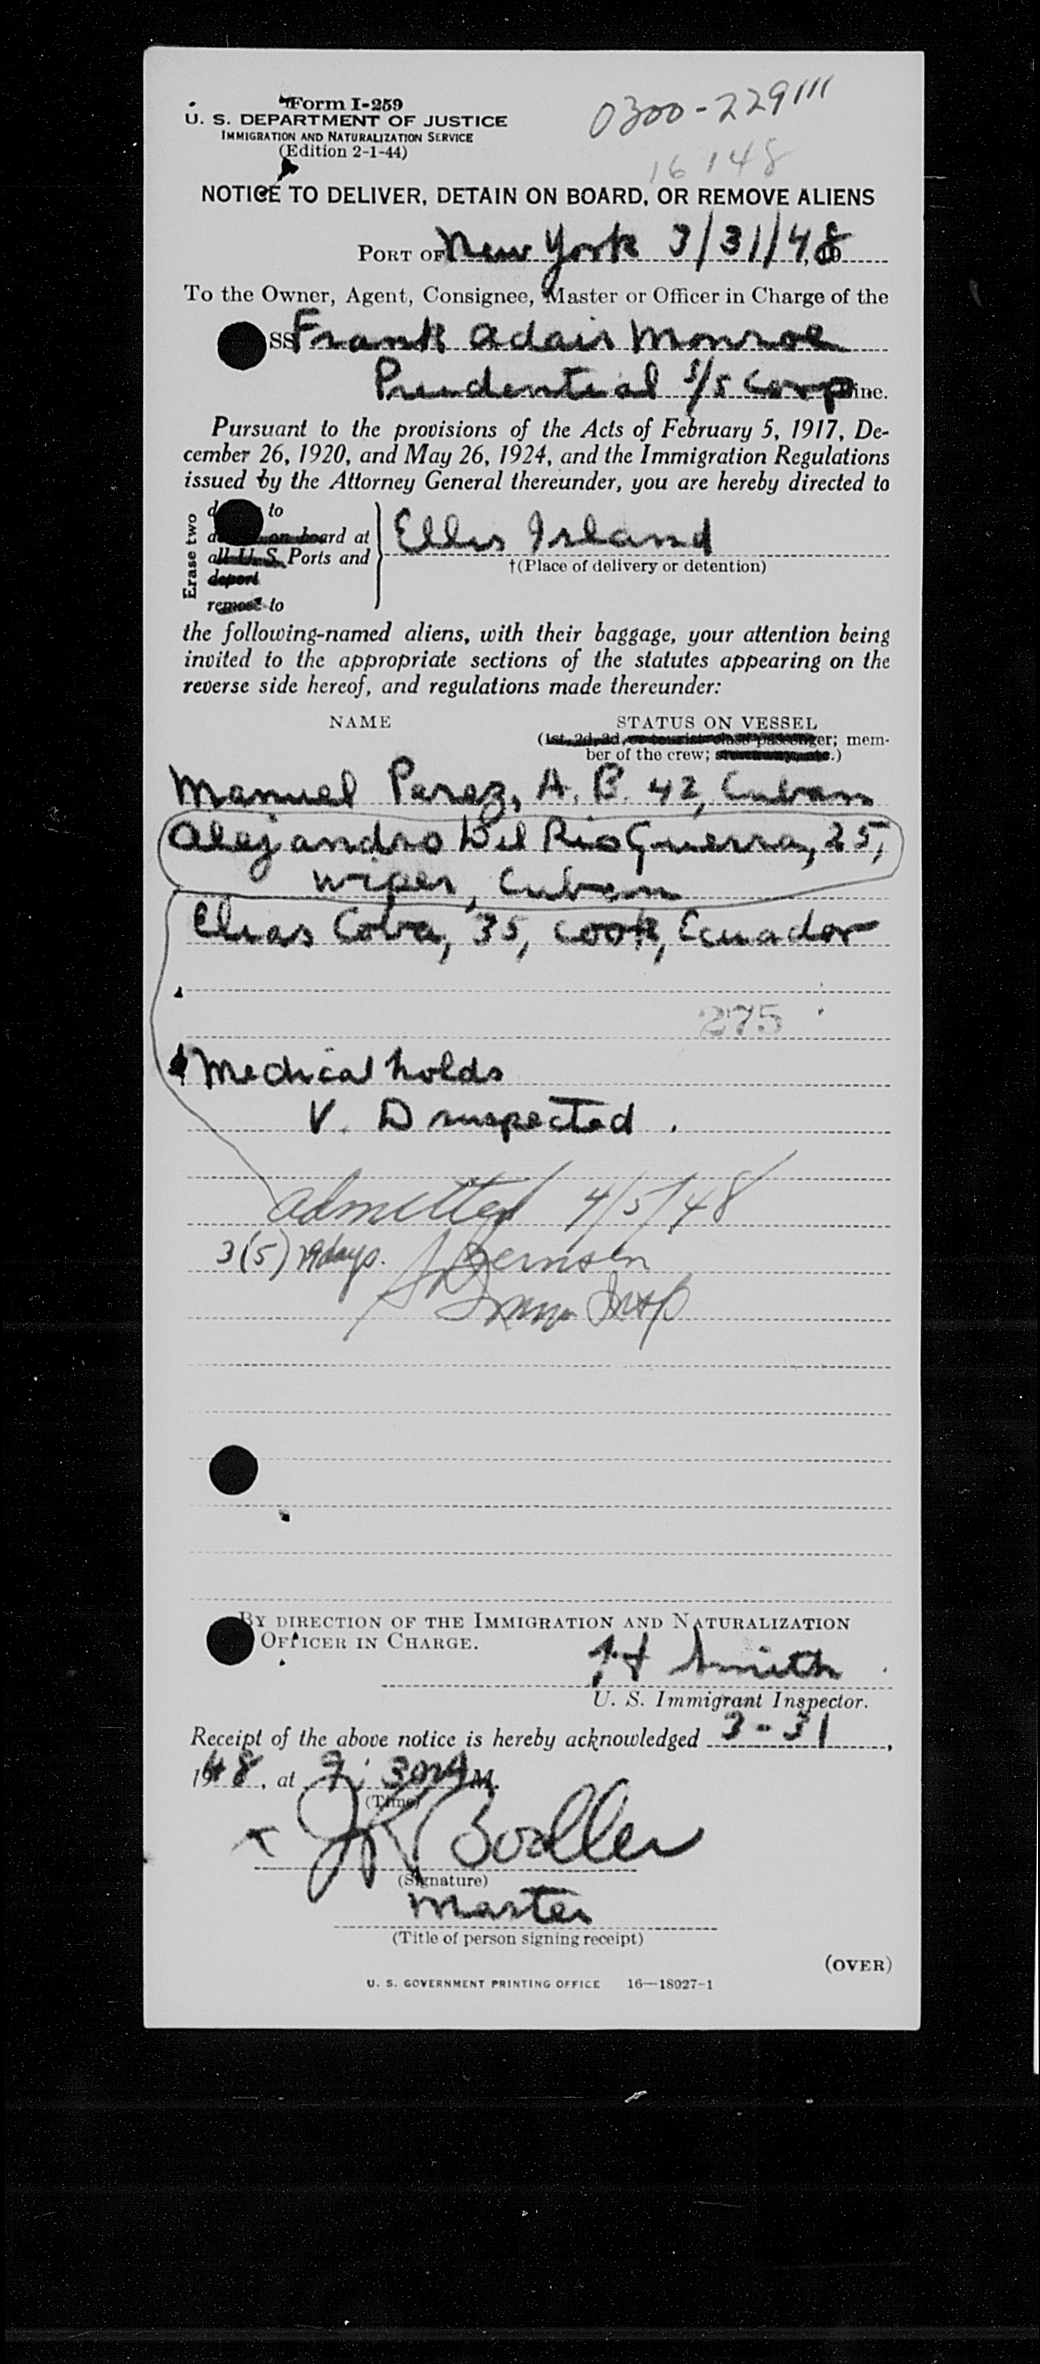 Form I-259
U. S. DEPARTMENT OF JUSTICE
IMMIGRATION AND NATURALIZATION SERVICE
(Edition 2-1-44)
0300-229111
16148
NOTICE TO DELIVER, DETAIN ON BOARD, OR REMOVE ALIENS
PORT OF New York 3/31/48
To the Owner, Agent, Consignee, Master or Officer in Charge of the
SS Frank Adair Monroe
Prudential S/S Corp Line.
Pursuant to the provisions of the Acts of February 5, 1917, De-
cember 26, 1920, and May 26, 1924, and the Immigration Regulations
issued by the Attorney General thereunder, you are hereby directed to
Erase two
to
on board at
all U. S. Ports and
deport
remove to
Ellis Island
†(Place of delivery or detention)
the following-named aliens, with their baggage, your attention being
invited to the appropriate sections of the statutes appearing on the
reverse side hereof, and regulations made thereunder:
NAME STATUS ON VESSEL
(1st, 2d, 3d, or tourist class passenger; mem-
ber of the crew; stowaway, etc.)
Manuel Perez, A. B. 42, Cuban
Alejandro Del Rio Guerra, 25,
wiper, Cuban
Elias Coba, 35, cook, Ecuador
275
Medical holds
V. D suspected.
admitted 4/5/48
3(5) 29 days.
Imm Insp
BY DIRECTION OF THE IMMIGRATION AND NATURALIZATION
OFFICER IN CHARGE.
Smith
U. S. Immigrant Inspector.
Receipt of the above notice is hereby acknowledged 3-31,
1948, at 9:30 A M.
(Time)
x
(Signature)
Master
(Title of person signing receipt)
(OVER)
U. S. GOVERNMENT PRINTING OFFICE 16—18027-1